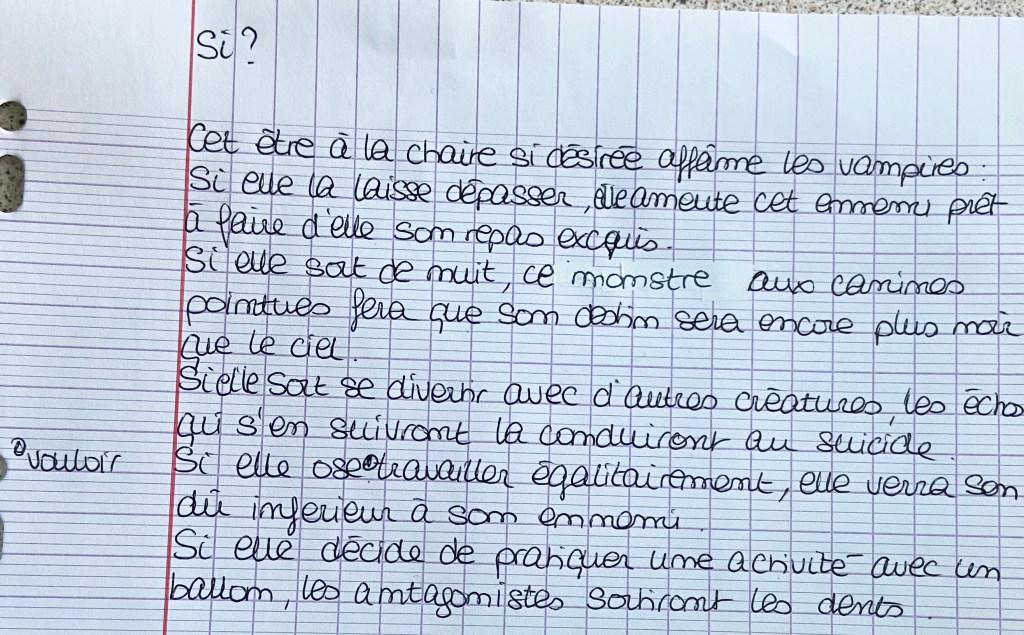 Si ?
Cet être à la chaire si désirée affâme les vampires :
Si elle la laisse dépasser, elle ameute cet ennemi prêt
à faire d'elle son repas excquis.
Si elle sort de nuit, ce monstre aux canines
pointues fera que son destin sera encore plus noir
que le ciel.
Si elle sort se divertir avec d'autres créatures, les échos
qui s'en suivront la conduiront au suicide.
vouloir
Si elle ose travailler égalitairement, elle verra son
dû inferieur à son ennemi.
Si elle décide de pratiquer une activité avec un
ballon, les antagonistes sortiront les dents.